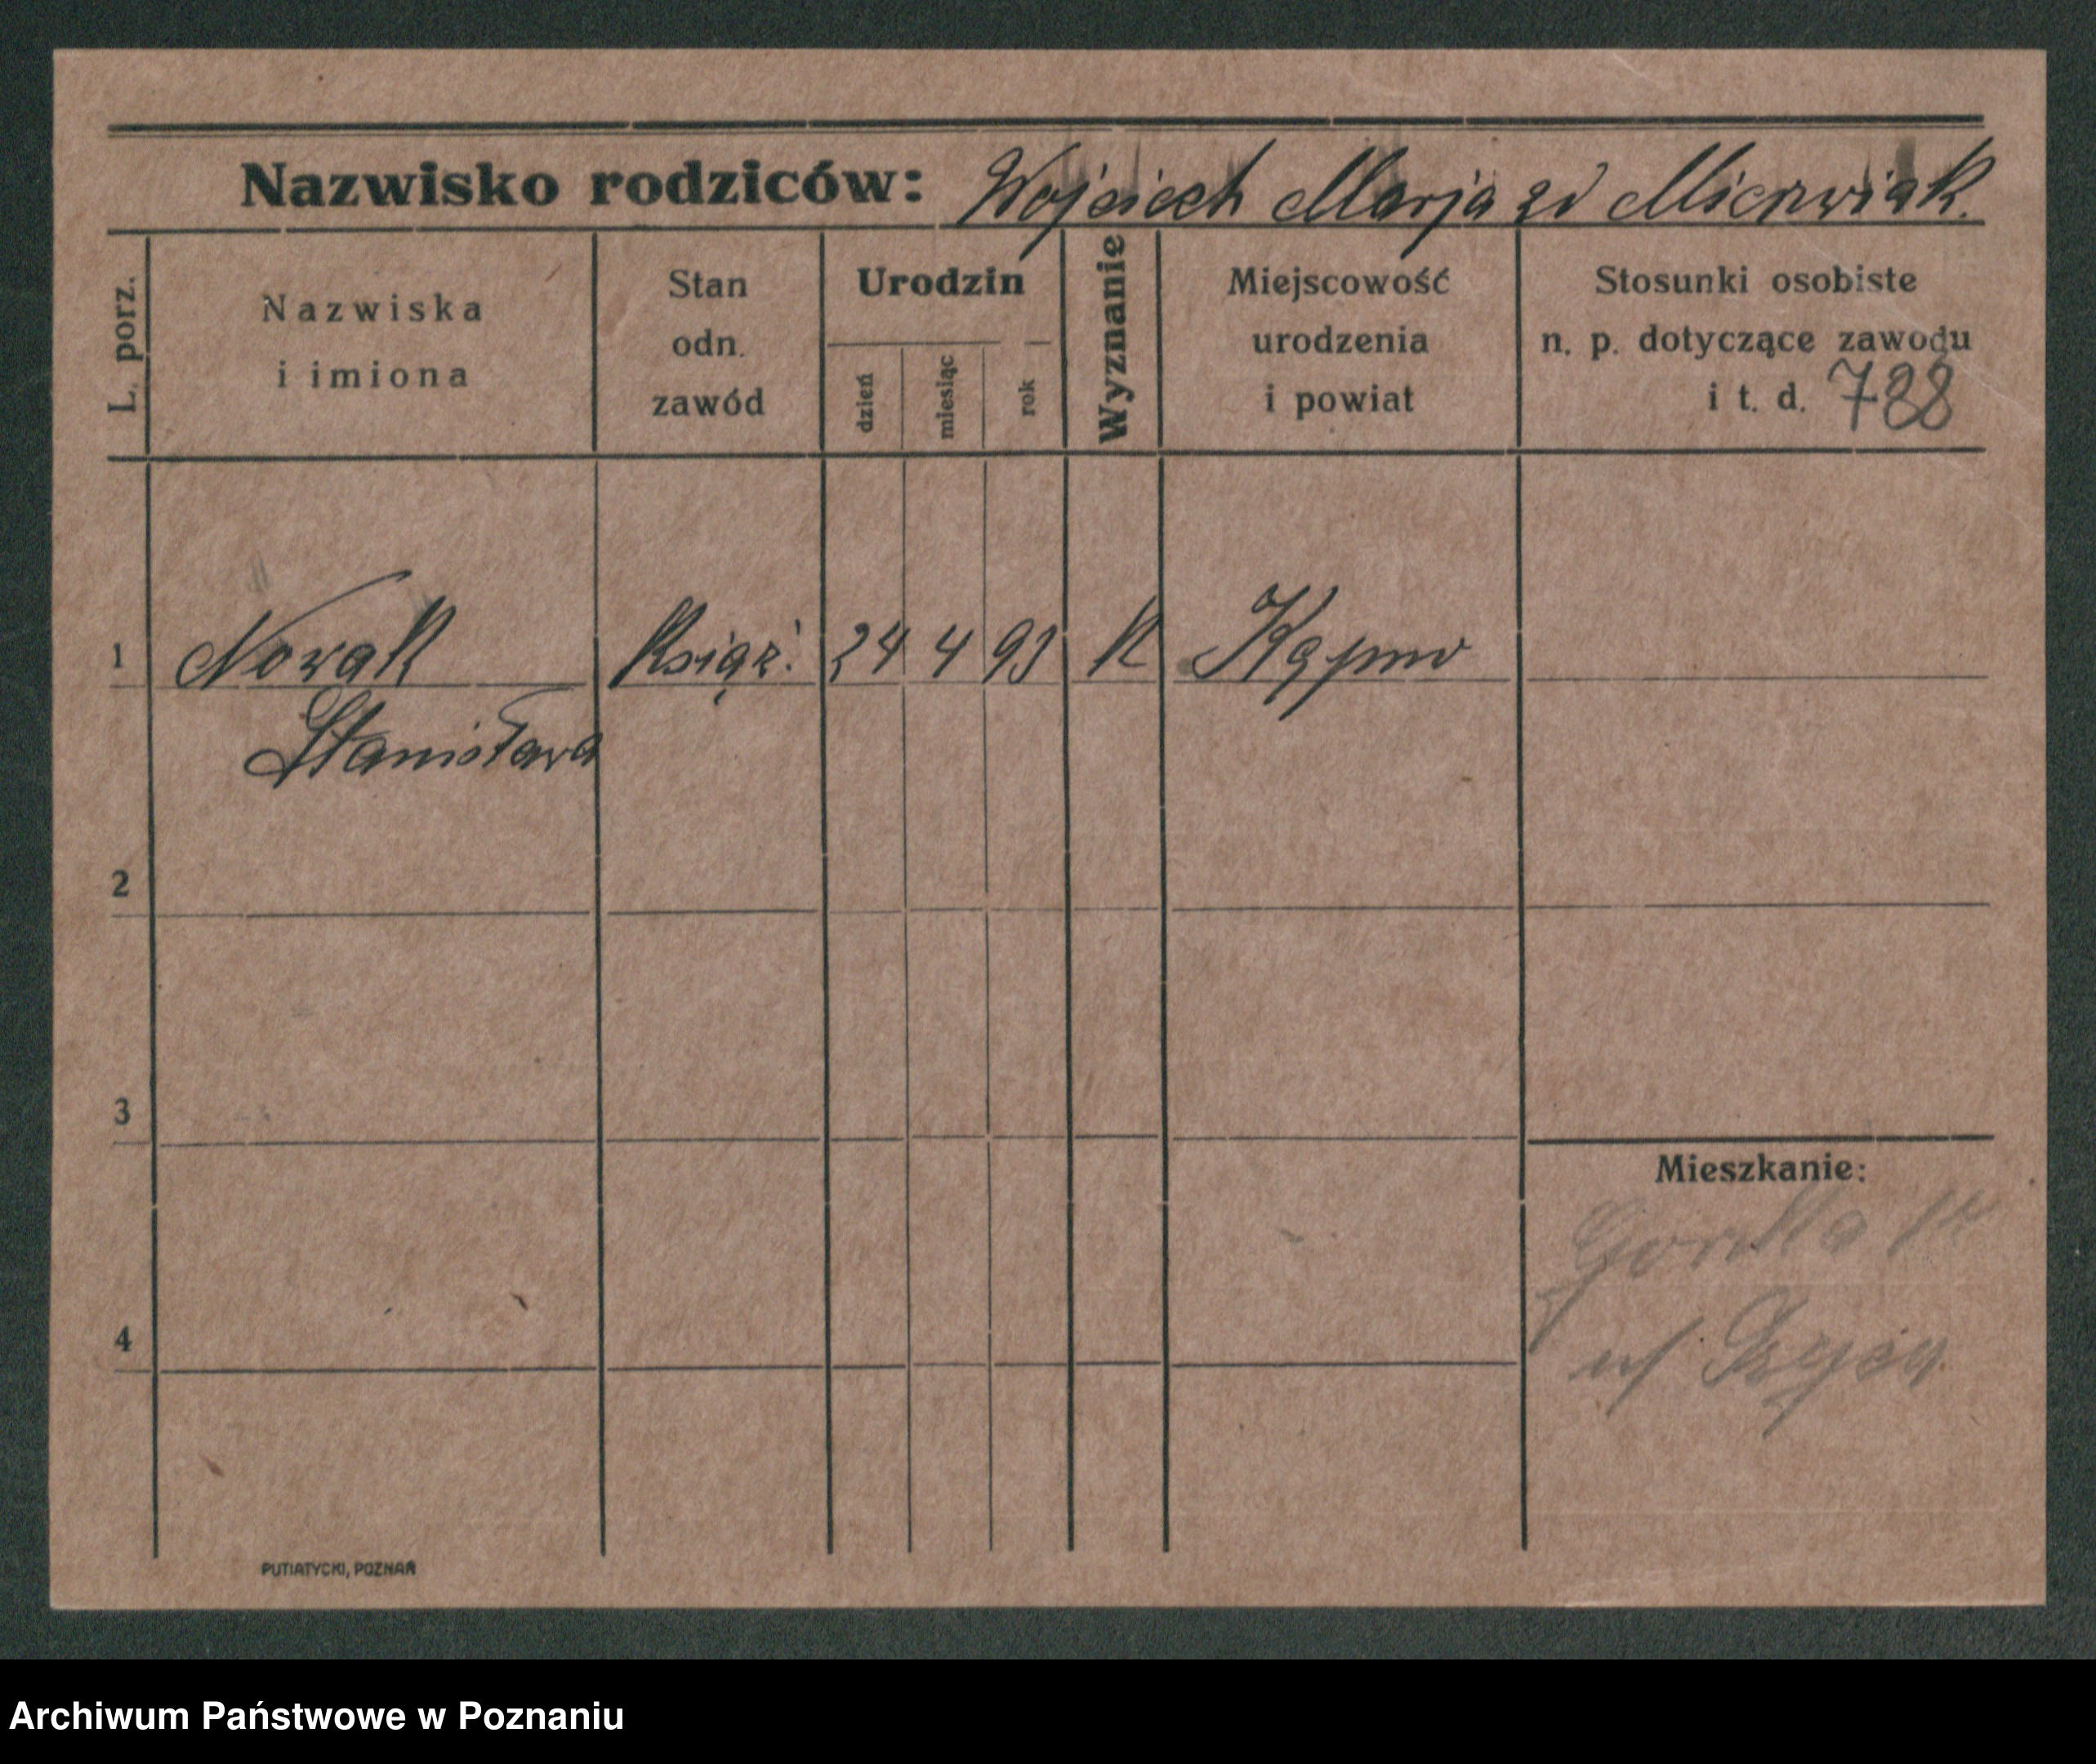 Nazwisko rodziców: Wojciech Marja zd
L. porz.
Nazwiska
i imiona
Stan
odn.
zawód
Urodzin
dzień
miesiąc
rok
Wyznanie
Miejscowość
urodzenia
i powiat
Stosunki osobiste
n. p. dotyczące zawodu
i t. d. 788
1 Nowak Książ. 24 4 93 K
Stanisława
2
3
Mieszkanie:
4
PUTIATYCKI, POZNAŃ
Archiwum Państwowe w Poznaniu